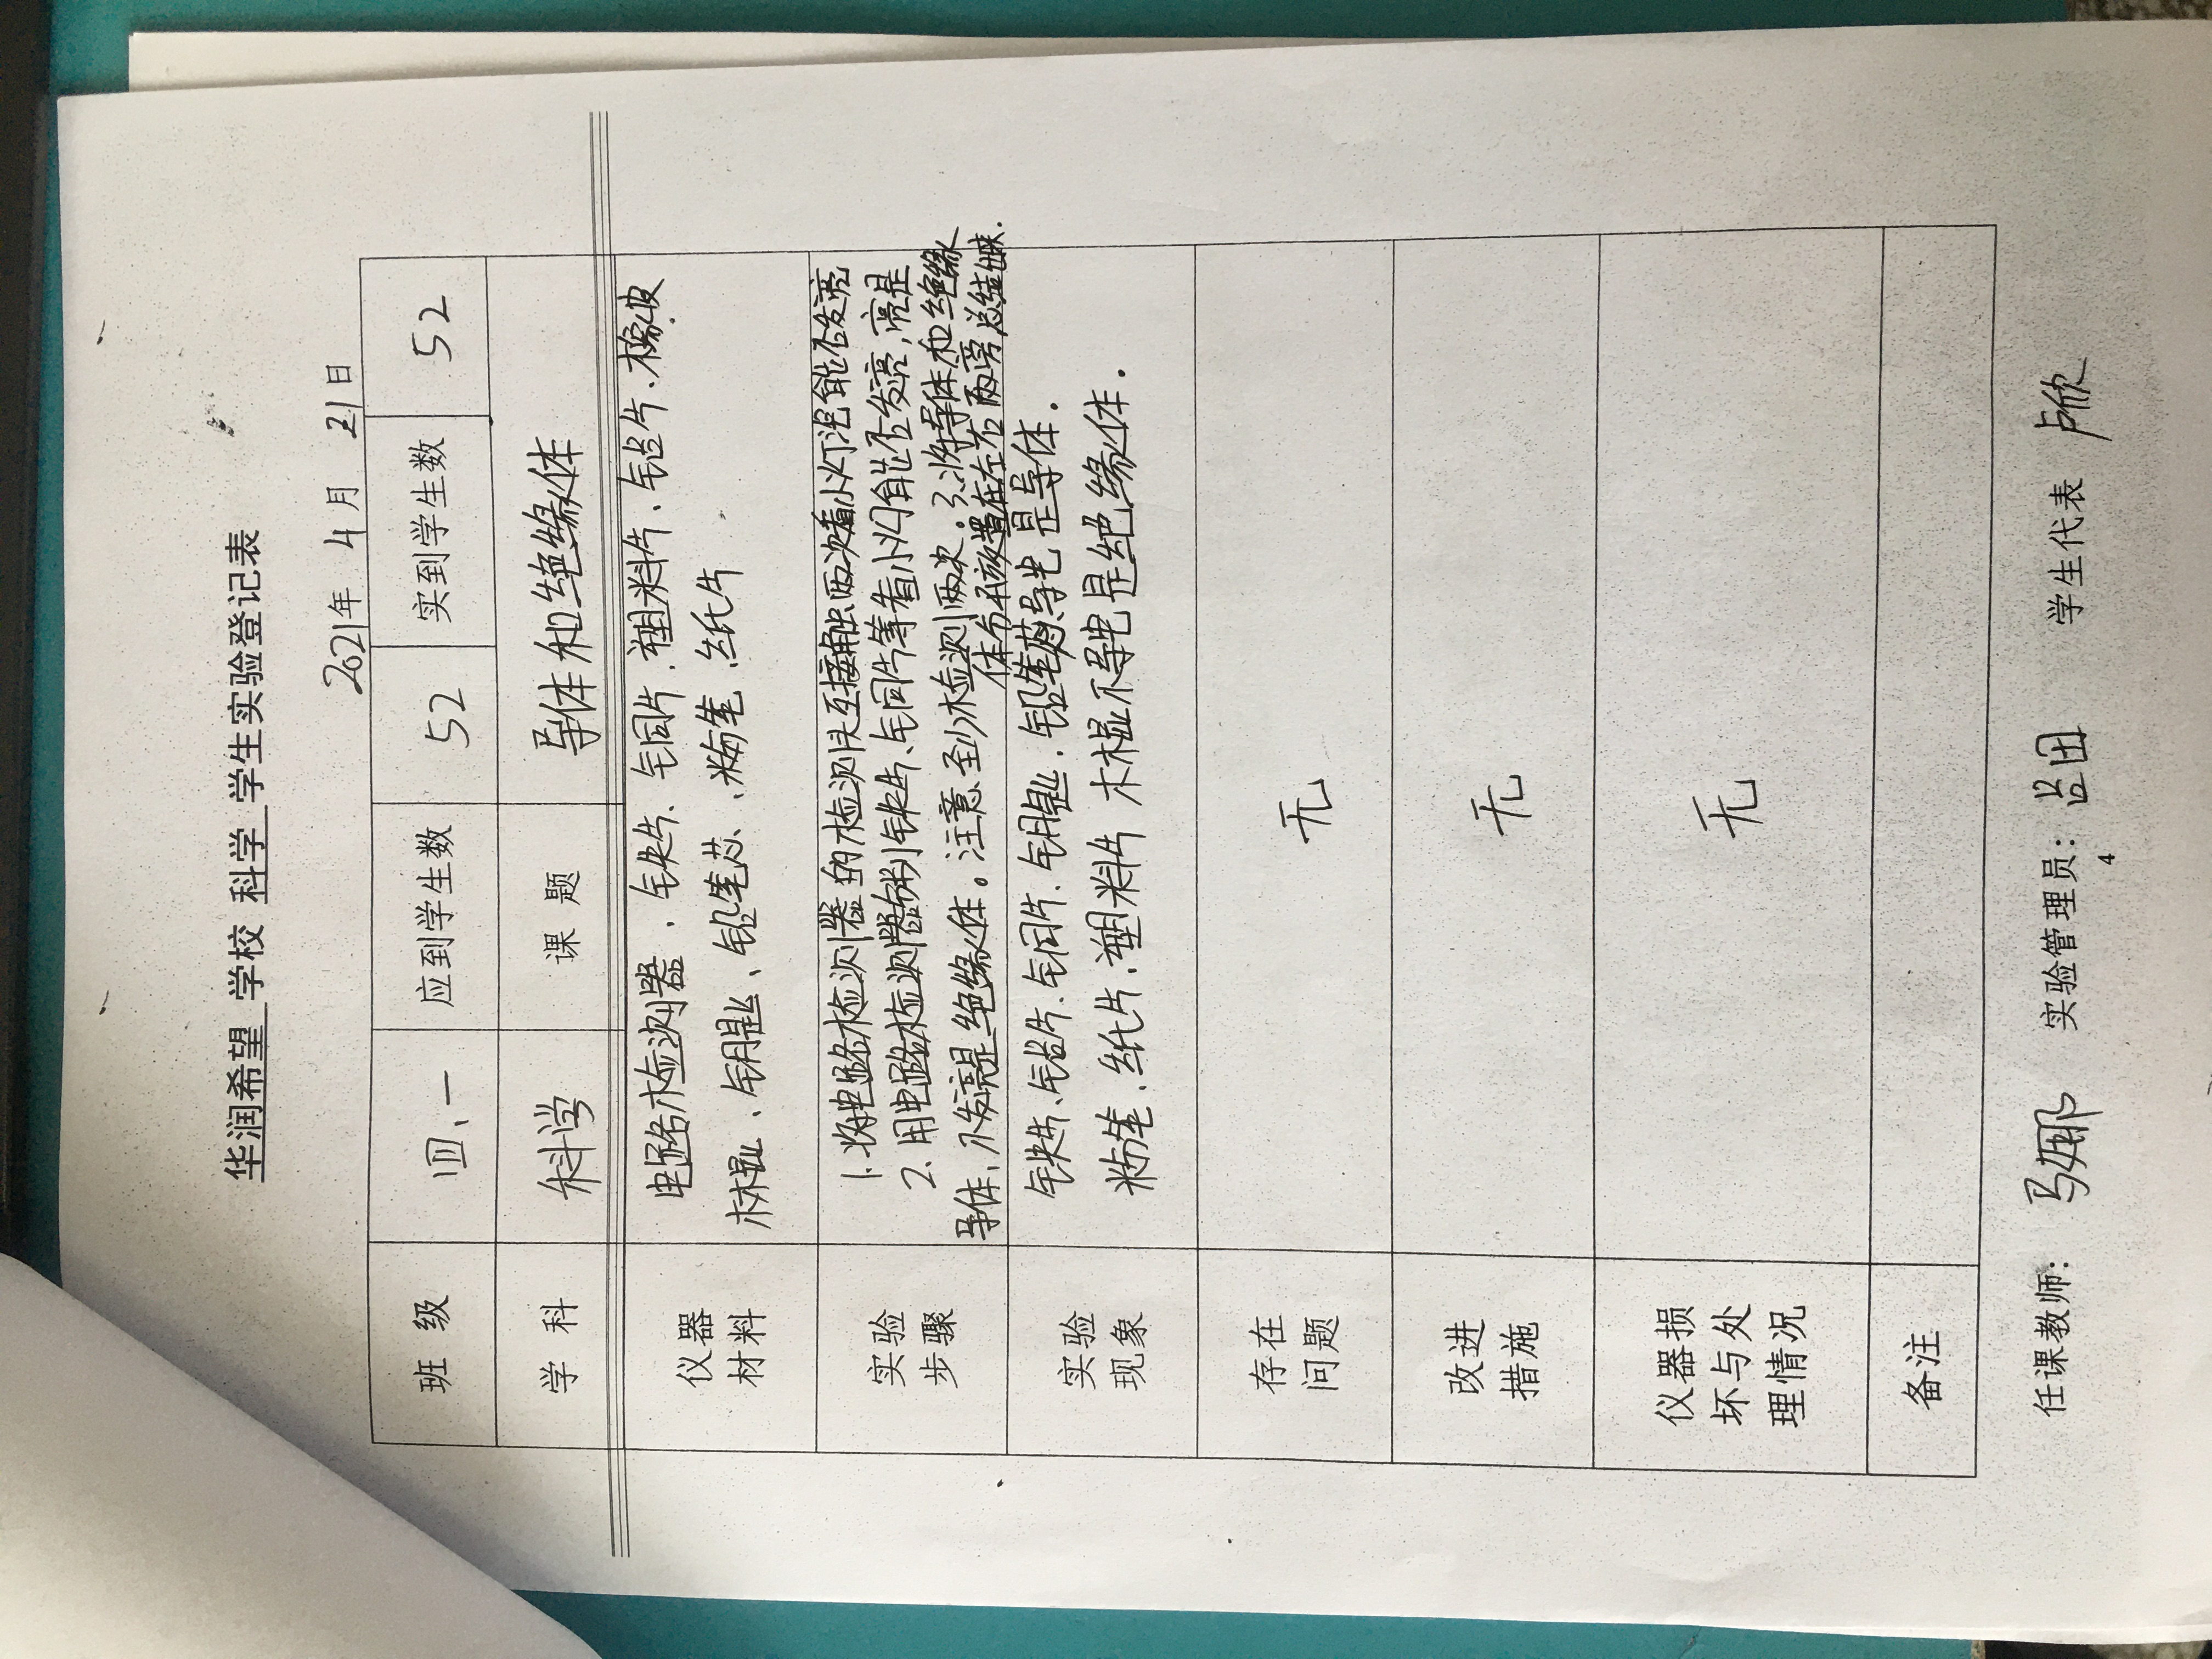 华润希望 学校 科学 学生实验登记表
2021年 4 月 21日
班 级 四、一 应到学生数 52 实到学生数 52
学 科 科学 课 题 导体和绝缘体
仪器材料 电路检测器、铁片、铜片、塑料片、铝片、橡皮
木棍、钥匙、铅笔芯、粉笔、纸片
实验步骤 1、将电路检测器的检测头互接触两次看小灯泡能否发亮
2、用电路检测器分别铁片、铜片等看小灯能否发亮,亮是
导体,不发亮是绝缘体。注意至少检测两次。3、将导体和绝缘
体分类放置在左右两旁总结
实验现象 铁片、铝片、铜片、钥匙、铅笔芯导电是导体。
粉笔、纸片、塑料片 木棍不导电是绝缘体。
存在问题 无
改进措施 无
仪器损坏与处理情况 无
备注
任课教师: 马娜 实验管理员: 学生代表 卢欣
4